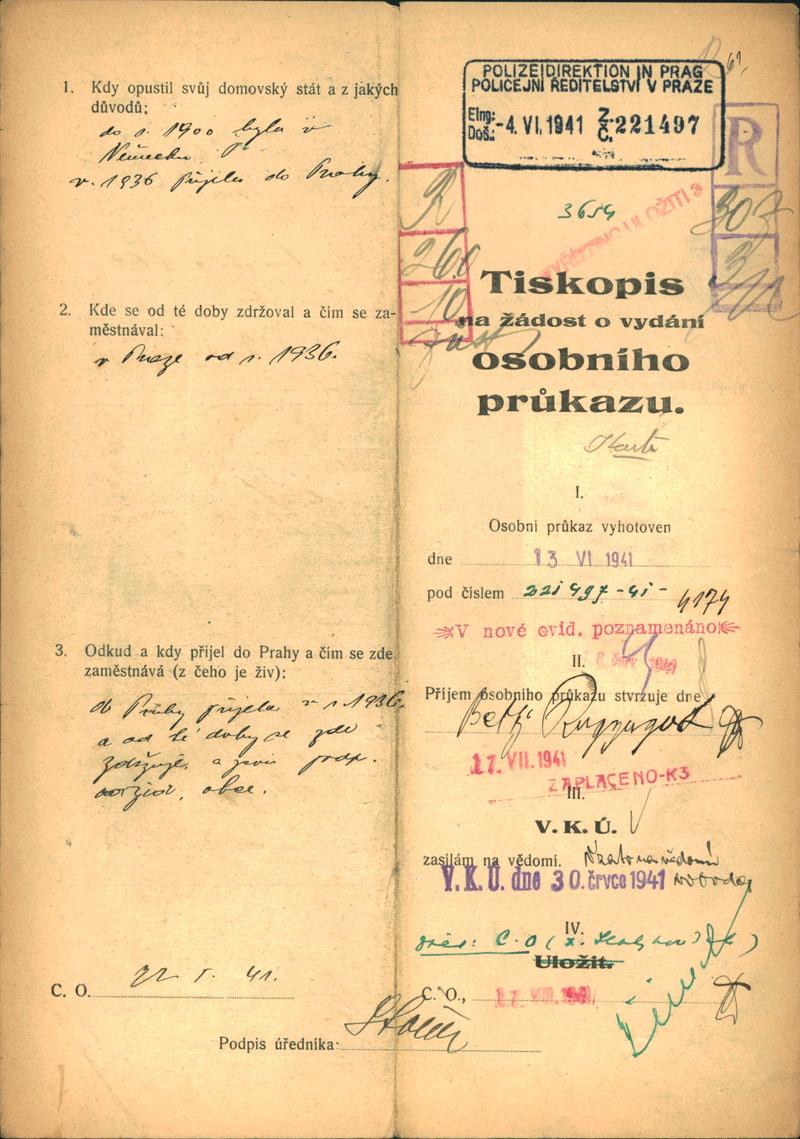 1. Kdy opustil svůj domovský stát a z jakých
důvodů:
do r. 1900 byla v
Německu.
v r. 1936 přijela do Prahy.
2. Kde se od té doby zdržoval a čím se za-
městnával:
v Praze od r. 1936.
3. Odkud a kdy přijel do Prahy a čím se zde
zaměstnává (z čeho je živ):
do Prahy přijela v r. 1936
a od té doby se zde
zdržuje, a
obce.
C. O. 41.
Podpis úředníka:
POLIZEIDIREKTION IN PRAG
POLICEJNÍ ŘEDITELSTVÍ V PRAZE
Eing:
Doš.: -4. VI. 1941 Z. Č. 221497
R
R
3654
VYŘÍZENO ULOŽITI
260
10
Tiskopis
na žádost o vydání
osobního
průkazu.
I.
Osobní průkaz vyhotoven
dne 13 VI 1941
pod číslem 221497-41- 4174
V nové evid. poznamenáno
II.
Příjem osobního průkazu stvrzuje dne
17. VII. 1941
ZAPLACENO-K3
III.
V. K. Ú.
zasílám na vědomí.
V. K. Ú. dne 30. črvce 1941
IV.
C. O
Uložit.
C. O.,